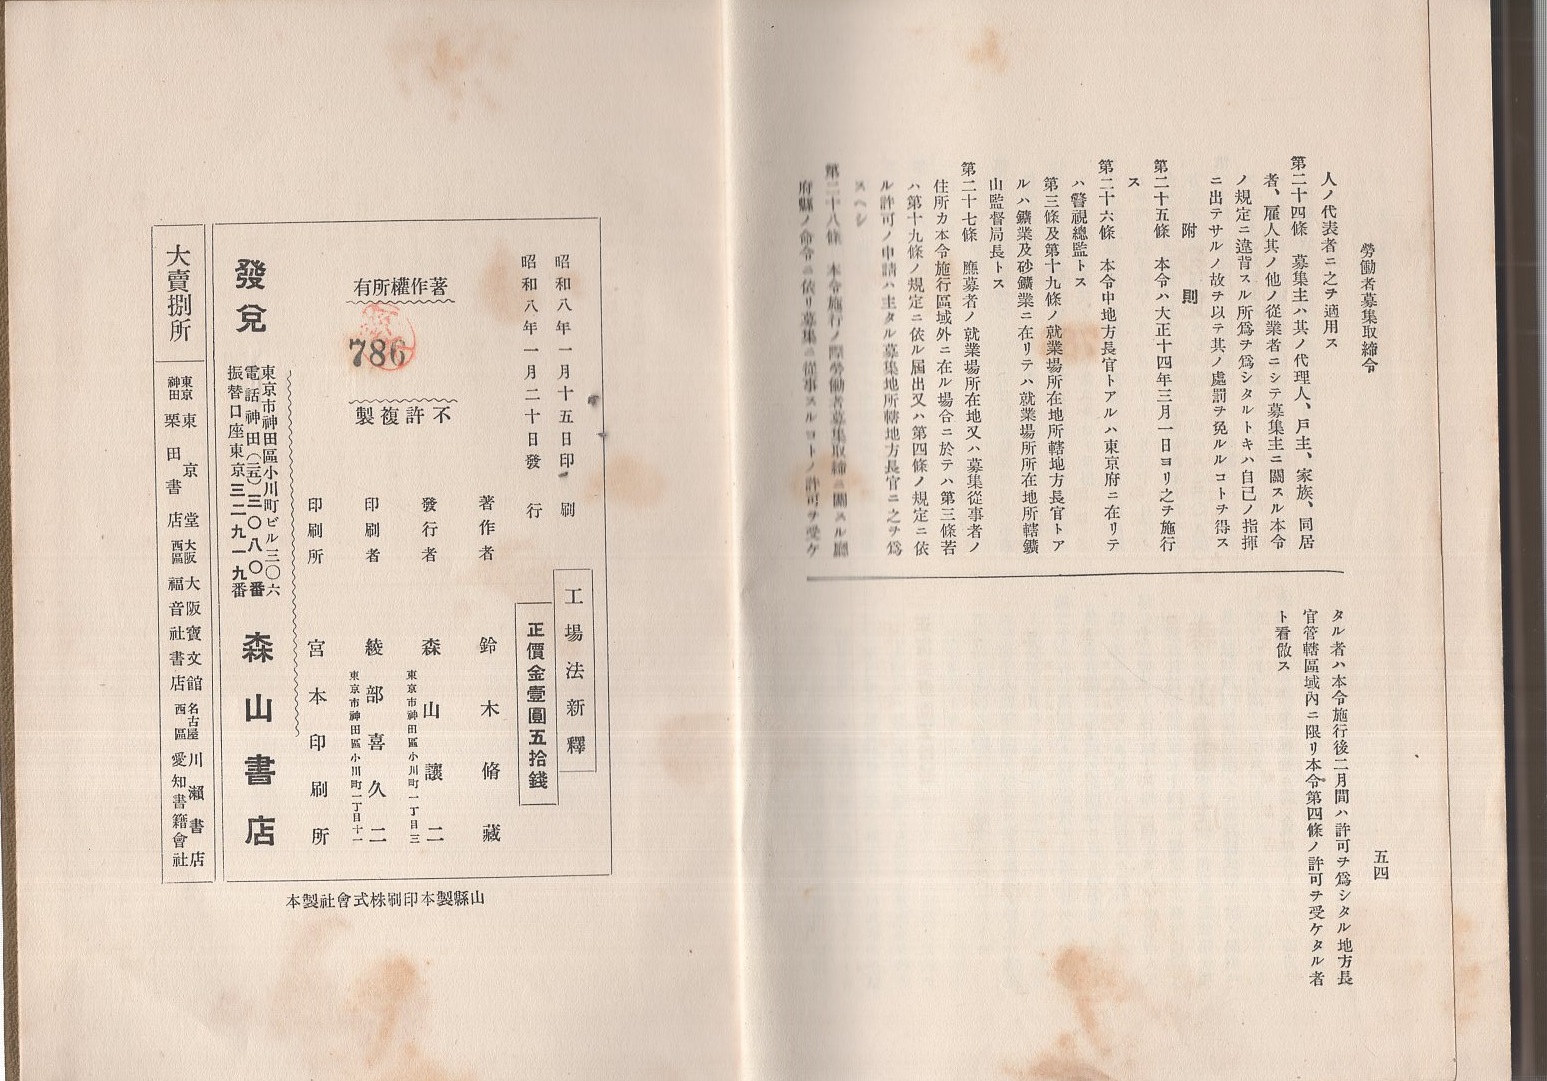 勞働者募集取締令
五四
人ノ代表者ニ之ヲ適用ス
第二十四條　募集主ハ其ノ代理人、戸主、家族、同居
者、雇人其ノ他ノ從業者ニシテ募集主ニ關スル本令
ノ規定ニ違背スル所爲ヲ爲シタルトキハ自己ノ指揮
ニ出テサルノ故ヲ以テ其ノ處罰ヲ免ルルコトヲ得ス
附則
第二十五條　本令ハ大正十四年三月一日ヨリ之ヲ施行
ス
第二十六條　本令中地方長官トアルハ東京府ニ在リテ
ハ警視總監トス
第三條及第十九條ノ就業場所在地所轄地方長官トア
ルハ鑛業及砂鑛業ニ在リテハ就業場所所在地所轄鑛
山監督局長トス
第二十七條　應募者ノ就業場所在地又ハ募集從事者ノ
住所カ本令施行區域外ニ在ル場合ニ於テハ第三條若
ハ第十九條ノ規定ニ依ル屆出又ハ第四條ノ規定ニ依
ル許可ノ申請ハ主タル募集地所轄地方長官ニ之ヲ爲
スヘシ
第二十八條　本令施行ノ際勞働者募集取締ニ關スル廳
府縣ノ命令ニ依リ募集ニ從事スルコトノ許可ヲ受ケ
タル者ハ本令施行後二月間ハ許可ヲ爲シタル地方長
官管轄區域內ニ限リ本令第四條ノ許可ヲ受ケタル者
ト看做ス
工場法新釋
正價金壹圓五拾錢
昭和八年一月十五日印刷
昭和八年一月二十日發行
著作者　鈴木脩藏
發行者　森山讓二
東京市神田區小川町一丁目三
印刷者　綾部喜久二
東京市神田區小川町一丁目十一
印刷所　宮本印刷所
著作權所有
786
不許複製
發兌
東京市神田區小川町ビル三〇六
電話神田(25)三〇八〇番
振替口座東京三二九一九番
森山書店
大賣捌所
東京神田　東京堂
栗田書店
大阪西區　大阪寶文館
福音社書店
名古屋西區　川瀨書店
愛知書籍會社
山縣製本印刷株式會社製本